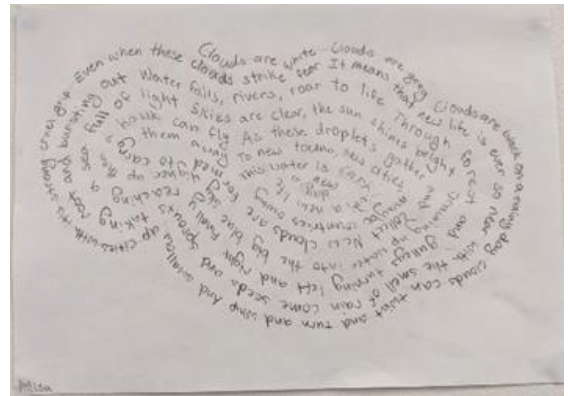 Clouds are white Clouds are grey Clouds are black on a rainy day Clouds can twist and turn and whip And swallow up cities with its strong cruel grip
Even when these clouds strike fear It means that new life is ever so near With the smell of rain come seeds and sprouts taking root and bursting out
Water falls, rivers, roar to life Through forest and gulleys turning left and right reaching a sea full of light
Skies are clear, the sun shines bright drawing up water into the big blue sky hawk can fly
As these droplets gather and collect New clouds are finally formed To carry them away
To new towns, new cities countries
this water is
a new
a new life